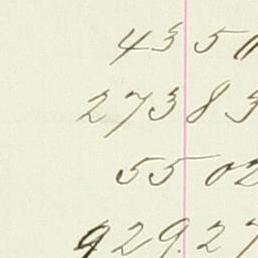 4350
27383
5502
929.27